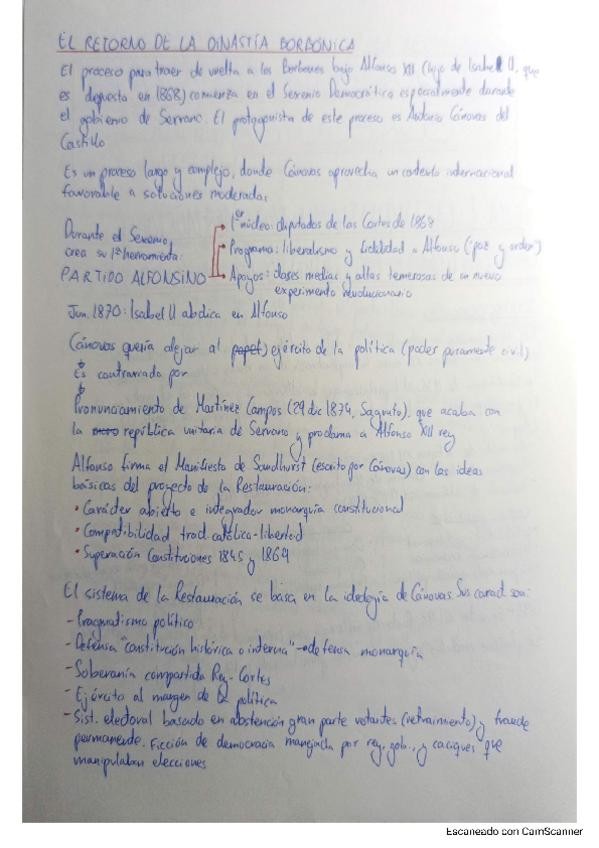 EL RETORNO DE LA DINASTÍA BORBÓNICA
El proceso para traer de vuelta a los Borbones bajo Alfonso XII (hijo de Isabel II, que
es depuesta en 1868) comienza en el Sexenio Democrático especialmente durante
el gobierno de Serrano. El protagonista de este proceso es Antonio Cánovas del
Castillo
Es un proceso largo y complejo, donde Cánovas aprovecha un contexto internacional
favorable a soluciones moderadas
Durante el Sexenio
crea su 1ª herramienta:
PARTIDO ALFONSINO
1er núcleo: diputados de las Cortes de 1868
Programa: liberalismo y fidelidad a Alfonso ("paz y orden")
Apoyos: clases medias y altas temerosas de un nuevo
experimento revolucionario
Jun. 1870: Isabel II abdica en Alfonso
Cánovas quería alejar al ejército de la política (poder puramente civil)
Es contrariado por
Pronunciamiento de Martínez Campos (29 dic 1874, Sagunto), que acaba con
la república unitaria de Serrano y proclama a Alfonso XII rey
Alfonso firma el Manifiesto de Sandhurst (escrito por Cánovas) con las ideas
básicas del proyecto de la Restauración:
• Carácter abierto e integrador monarquía constitucional
• Compatibilidad trad. católica-libertad
• Superación Constituciones 1845 y 1869
El sistema de la Restauración se basa en la ideología de Cánovas. Sus caract. son:
- Pragmatismo político
- Defensa "constitución histórica o interna" → defensa monarquía
- Soberanía compartida Rey-Cortes
- Ejército al margen de la política
- Sist. electoral basado en abstención gran parte votantes (retraimiento) y fraude
permanente. Ficción de democracia manejada por rey, gob., y caciques que
manipulaban elecciones
Escaneado con CamScanner